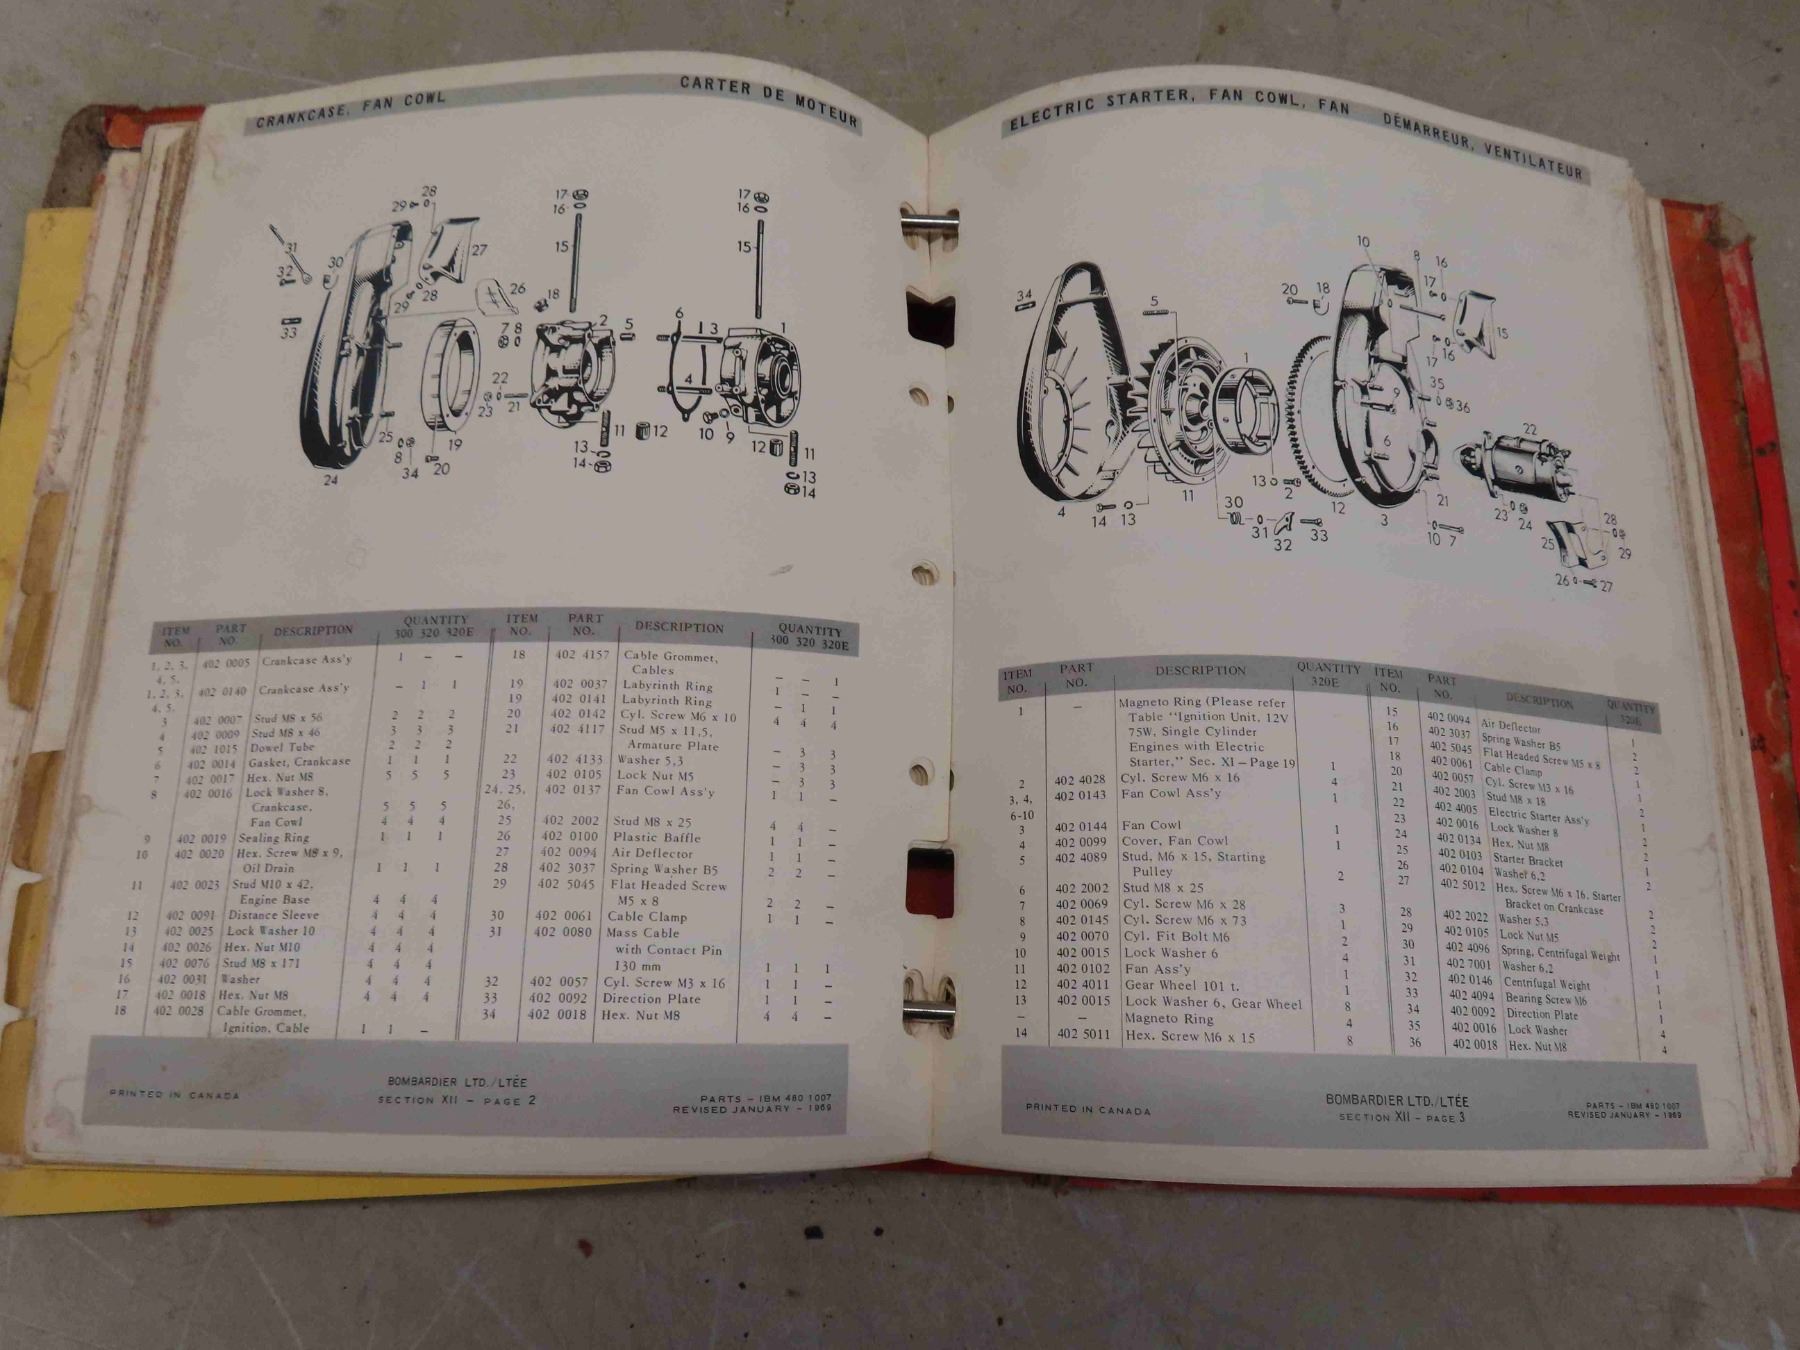 CRANKCASE, FAN COWL
CARTER DE MOTEUR
28
29
27
31
30
32
28
29
26
33
17
16
15
18
17
16
15
7 8
2
5
6
1 3
1
22
4
23
21
25
19
11
12
10
9
12
11
13
14
13
14
8
34
20
24
ITEM NO. PART NO. DESCRIPTION QUANTITY 300 320 320E
1, 2, 3, 4, 5. 402 0005 Crankcase Ass'y 1 – –
1, 2, 3, 4, 5. 402 0140 Crankcase Ass'y – 1 1
3 402 0007 Stud M8 x 56 2 2 2
4 402 0009 Stud M8 x 46 3 3 3
5 402 1015 Dowel Tube 2 2 2
6 402 0014 Gasket, Crankcase 1 1 1
7 402 0017 Hex. Nut M8 5 5 5
8 402 0016 Lock Washer 8,
Crankcase, 5 5 5
Fan Cowl 4 4 4
9 402 0019 Sealing Ring 1 1 1
10 402 0020 Hex. Screw M8 x 9,
Oil Drain 1 1 1
11 402 0023 Stud M10 x 42,
Engine Base 4 4 4
12 402 0091 Distance Sleeve 4 4 4
13 402 0025 Lock Washer 10 4 4 4
14 402 0026 Hex. Nut M10 4 4 4
15 402 0076 Stud M8 x 171 4 4 4
16 402 0031 Washer 4 4 4
17 402 0018 Hex. Nut M8 4 4 4
18 402 0028 Cable Grommet,
Ignition, Cable 1 1 –
ITEM NO. PART NO. DESCRIPTION QUANTITY 300 320 320E
18 402 4157 Cable Grommet,
Cables – – 1
19 402 0037 Labyrinth Ring 1 – –
19 402 0141 Labyrinth Ring – 1 1
20 402 0142 Cyl. Screw M6 x 10 4 4 4
21 402 4117 Stud M5 x 11,5,
Armature Plate – 3 3
22 402 4133 Washer 5,3 – 3 3
23 402 0105 Lock Nut M5 – 3 3
24, 25, 26, 402 0137 Fan Cowl Ass'y 1 1 –
25 402 2002 Stud M8 x 25 4 4 –
26 402 0100 Plastic Baffle 1 1 –
27 402 0094 Air Deflector 1 1 –
28 402 3037 Spring Washer B5 2 2 –
29 402 5045 Flat Headed Screw
M5 x 8 2 2 –
30 402 0061 Cable Clamp 1 1 –
31 402 0080 Mass Cable
with Contact Pin
130 mm 1 1 1
32 402 0057 Cyl. Screw M3 x 16 1 1 –
33 402 0092 Direction Plate 1 1 –
34 402 0018 Hex. Nut M8 4 4 –
PRINTED IN CANADA
BOMBARDIER LTD./LTÉE
SECTION XII – PAGE 2
PARTS – IBM 480 1007
REVISED JANUARY – 1969
ELECTRIC STARTER, FAN COWL, FAN
DÉMARREUR, VENTILATEUR
10
8
16
17
20
18
34
5
15
17
16
1
35
9
36
6
22
21
13
2
30
12
11
4
14
13
31
32
33
3
10 7
23
24
28
25
29
26
27
ITEM NO. PART NO. DESCRIPTION QUANTITY 320E
1 – Magneto Ring (Please refer
Table "Ignition Unit, 12V
75W, Single Cylinder
Engines with Electric
Starter," Sec. XI – Page 19 1
2 402 4028 Cyl. Screw M6 x 16 4
3, 4, 6-10 402 0143 Fan Cowl Ass'y 1
3 402 0144 Fan Cowl 1
4 402 0099 Cover, Fan Cowl 1
5 402 4089 Stud, M6 x 15, Starting
Pulley 2
6 402 2002 Stud M8 x 25
7 402 0069 Cyl. Screw M6 x 28 3
8 402 0145 Cyl. Screw M6 x 73 1
9 402 0070 Cyl. Fit Bolt M6 2
10 402 0015 Lock Washer 6 4
11 402 0102 Fan Ass'y 1
12 402 4011 Gear Wheel 101 t. 1
13 402 0015 Lock Washer 6, Gear Wheel 8
– – Magneto Ring 4
14 402 5011 Hex. Screw M6 x 15 8
ITEM NO. PART NO. DESCRIPTION QUANTITY 320E
15 402 0094 Air Deflector 1
16 402 3037 Spring Washer B5 2
17 402 5045 Flat Headed Screw M5 x 8 2
18 402 0061 Cable Clamp 1
20 402 0057 Cyl. Screw M3 x 16 1
21 402 2003 Stud M8 x 18 2
22 402 4005 Electric Starter Ass'y 1
23 402 0016 Lock Washer 8 2
24 402 0134 Hex. Nut M8 2
25 402 0103 Starter Bracket 1
26 402 0104 Washer 6,2 2
27 402 5012 Hex. Screw M6 x 16, Starter
Bracket on Crankcase 2
28 402 2022 Washer 5,3 2
29 402 0105 Lock Nut M5 2
30 402 4096 Spring, Centrifugal Weight 1
31 402 7001 Washer 6,2 1
32 402 0146 Centrifugal Weight 1
33 402 4094 Bearing Screw M6 1
34 402 0092 Direction Plate 1
35 402 0016 Lock Washer 4
36 402 0018 Hex. Nut M8 4
PRINTED IN CANADA
BOMBARDIER LTD./LTÉE
SECTION XII – PAGE 3
PARTS – IBM 480 1007
REVISED JANUARY – 1969